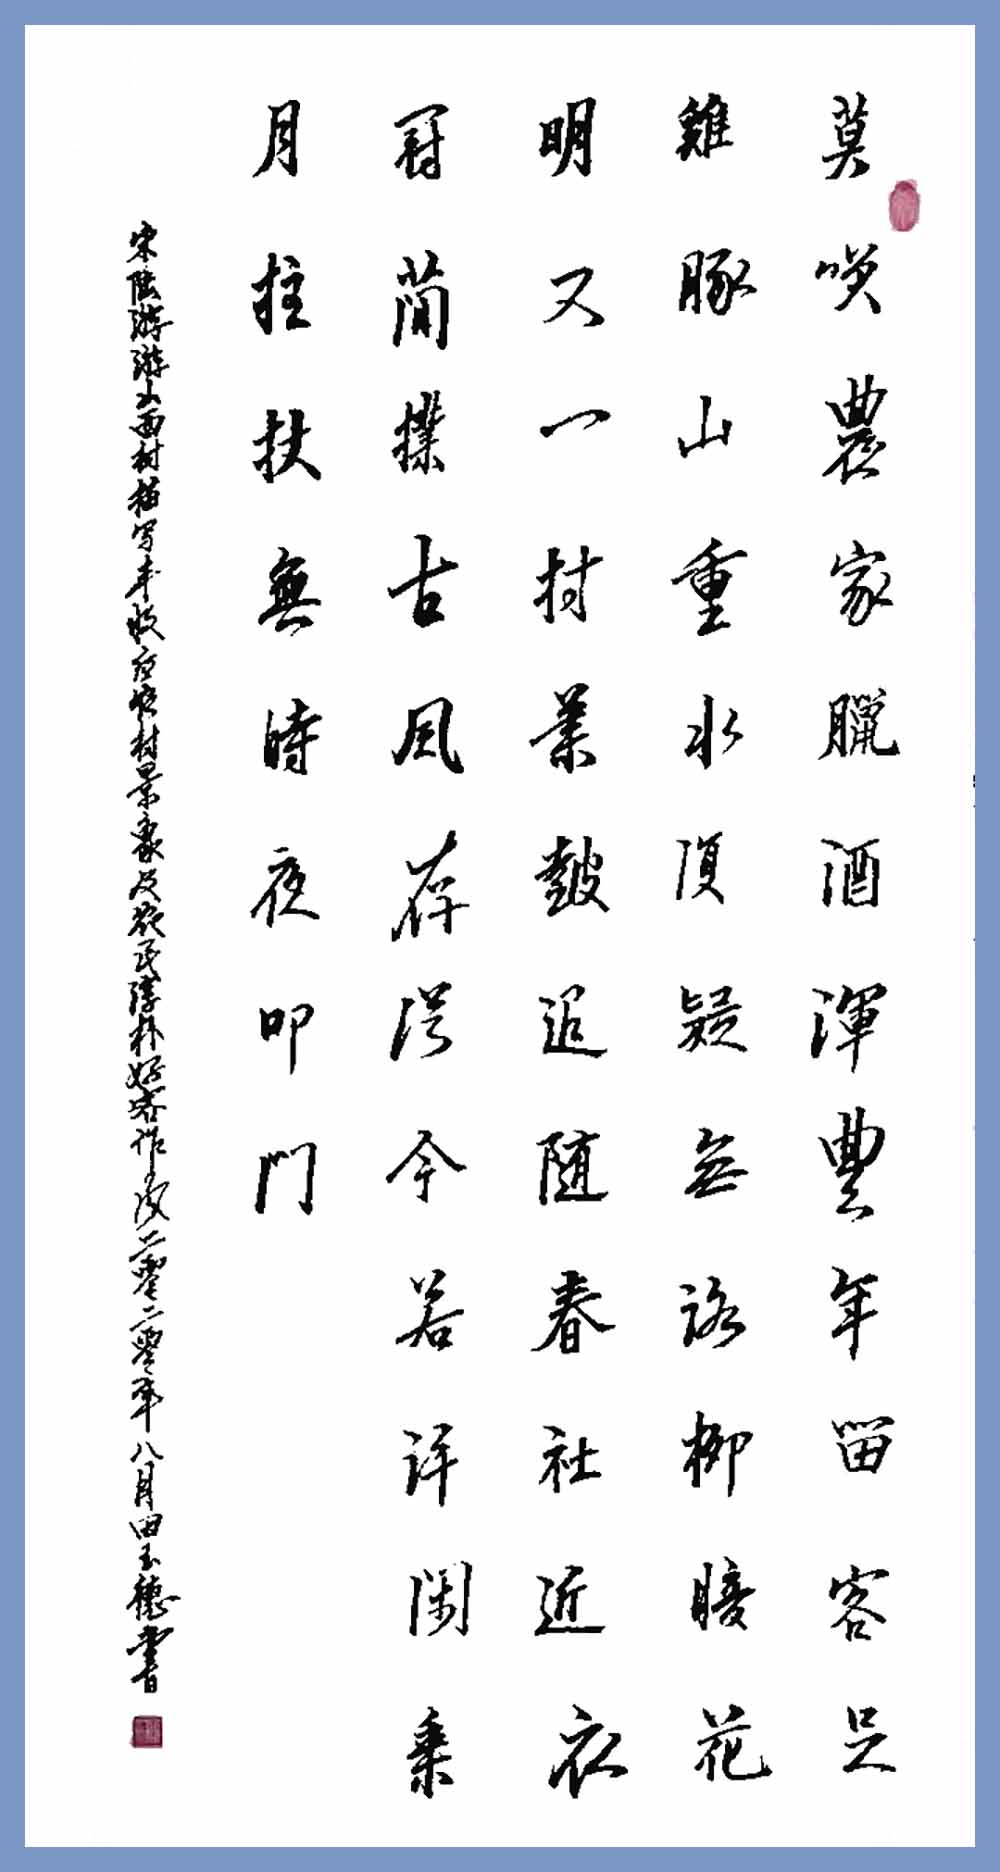 莫咲農家臘酒渾豐年留客足
雞豚山重水復疑無路柳暗花
明又一村簫皷追随春社近衣
冠簡樸古風存從今若許閑乘
月拄杖無時夜叩門
宋陸游游山西村描写丰收農村景象及農民淳朴好客作風二零二零年八月田玉德書